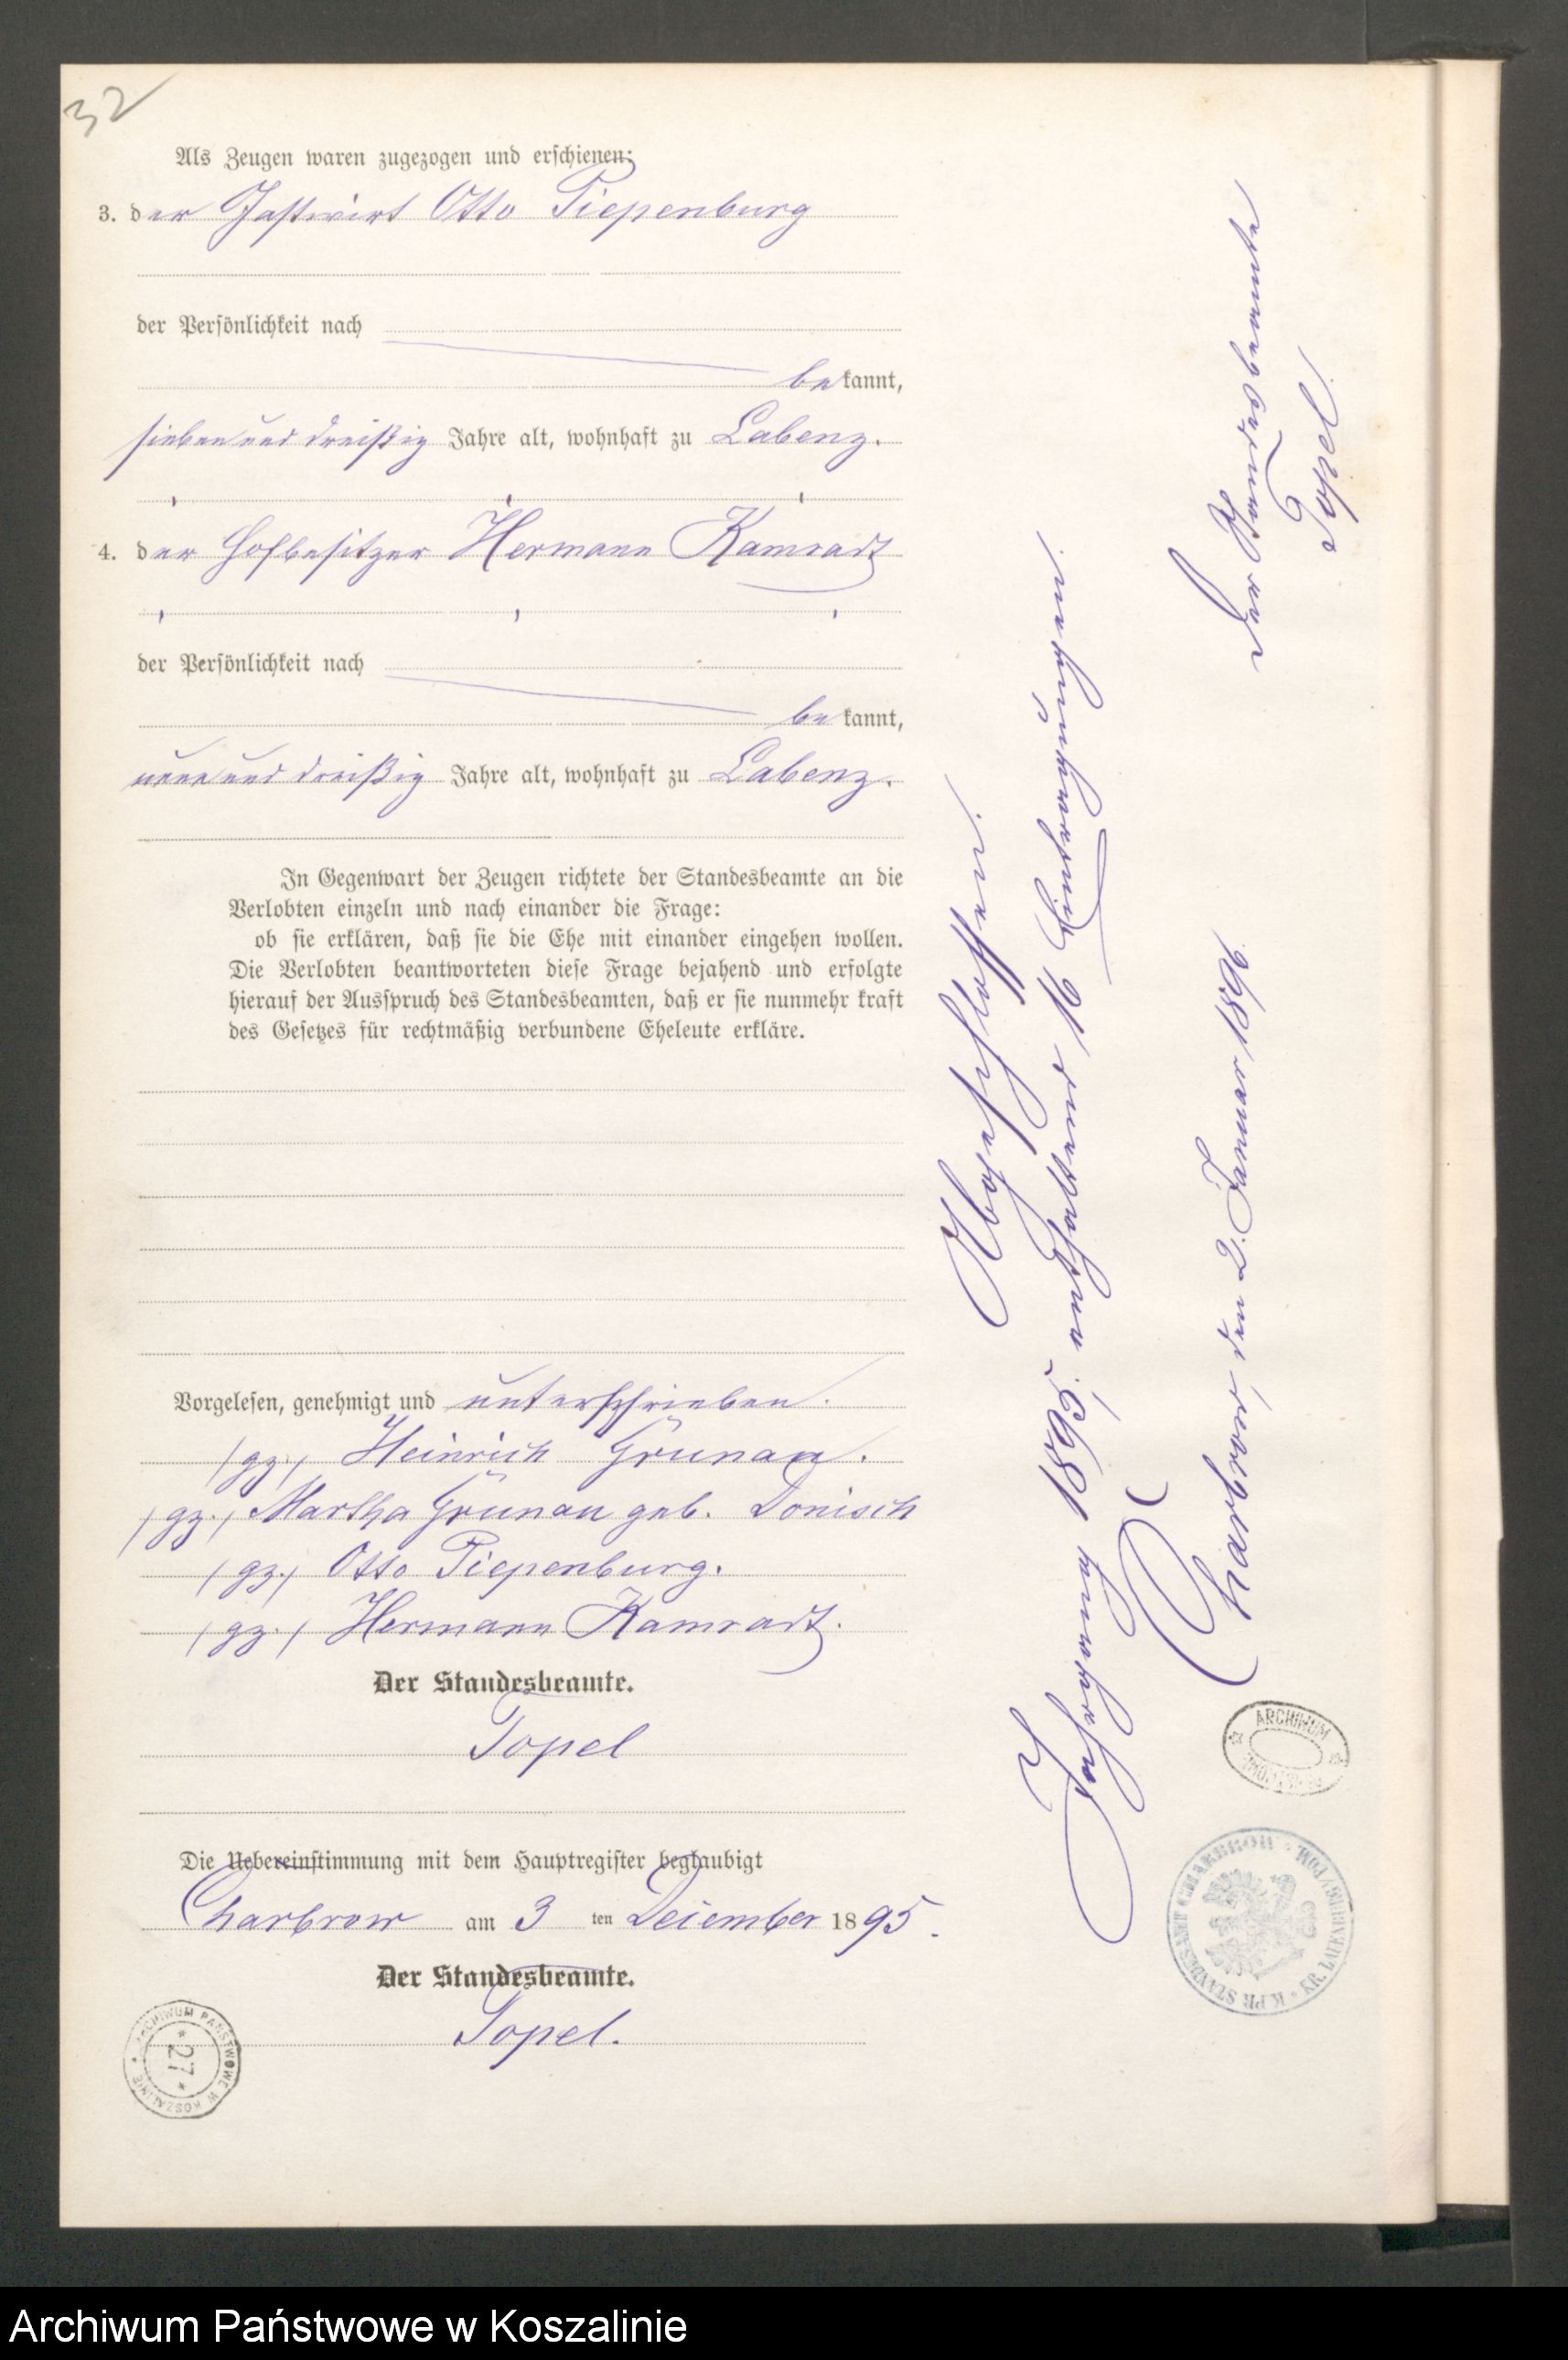 32
Als Zeugen waren zugezogen und erschienen:
3. der Gastwirt Otto Piepenburg
der Persönlichkeit nach
bekannt,
siebenunddreißig Jahre alt, wohnhaft zu Labenz.
4. der Hofbesitzer Hermann Kamradt
der Persönlichkeit nach
bekannt,
neununddreißig Jahre alt, wohnhaft zu Labenz.
In Gegenwart der Zeugen richtete der Standesbeamte an die
Verlobten einzeln und nach einander die Frage:
ob sie erklären, daß sie die Ehe mit einander eingehen wollen.
Die Verlobten beantworteten diese Frage bejahend und erfolgte
hierauf der Ausspruch des Standesbeamten, daß er sie nunmehr kraft
des Gesetzes für rechtmäßig verbundene Eheleute erkläre.
Vorgelesen, genehmigt und unterschrieben.
(gz.) Heinrich Grünau.
(gz.) Martha Grünau geb. Donisch
(gz.) Otto Piepenburg.
(gz.) Hermann Kamradt.
Der Standesbeamte.
Topel
Die Uebereinstimmung mit dem Hauptregister beglaubigt
Charbrow am 3 ten Dezember 1895.
Der Standesbeamte.
Topel.
ARCHIWUM PAŃSTWOWE W KOSZALINIE
27
Abgeschlossen.
Jahrgang 1895, enthaltend 16 Eintragungen.
Charbrow, den 2. Januar 1896.
Der Standesbeamte
Topel.
ARCHIWUM
K. PR. STANDESAMT CHARBROW • KR. LAUENBURG/POM.
Archiwum Państwowe w Koszalinie